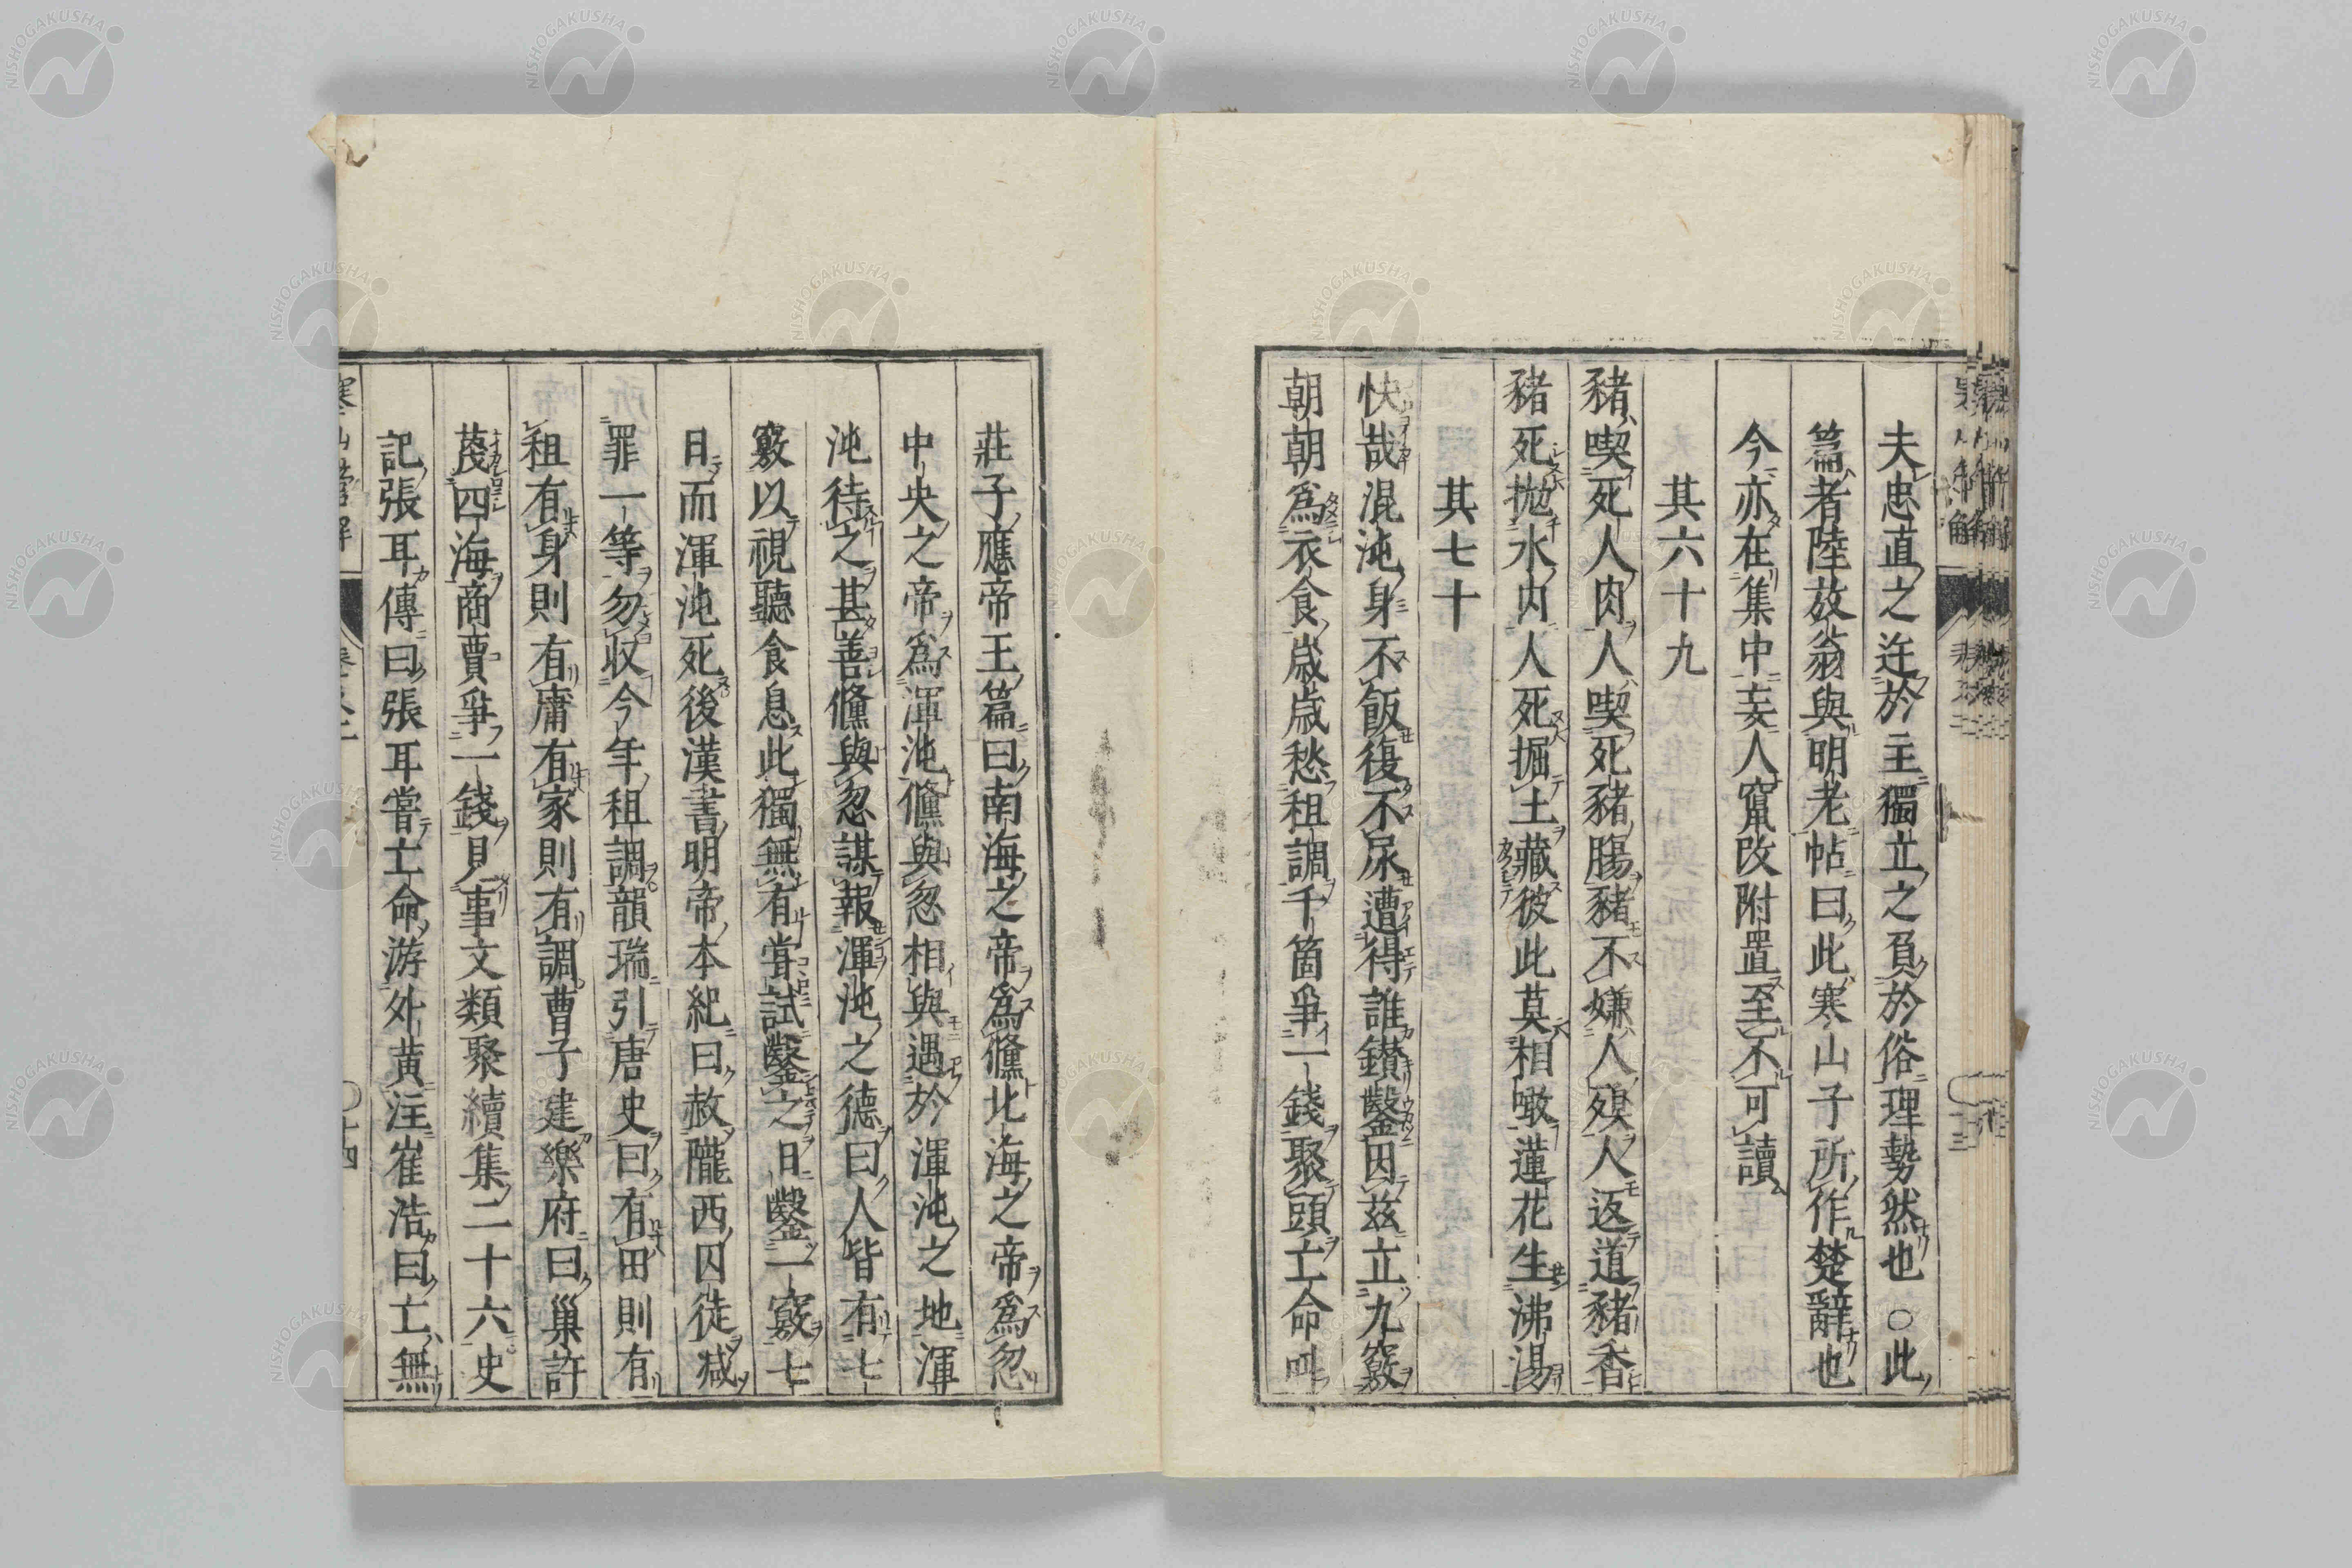 夫忠直之迕於主獨立之負於俗理勢然也○此
篇者陸放翁與明老帖曰此寒山子所作楚辭也
今亦在集中妄人竄改附置至不可讀
其六十九
豬喫死人肉人喫死豬腸豬不嫌人殠人返道豬香
豬死抛水内人死掘土藏彼此莫相噉蓮花生沸湯
其七十
快哉混沌身不飯復不尿遭得誰鑚鑿因兹立九竅
朝朝爲衣食歲歲愁租調千箇爭一錢聚頭亡命叫
莊子應帝王篇曰南海之帝爲儵北海之帝爲忽
中央之帝爲渾沌儵與忽相與遇於渾沌之地渾
沌待之甚善儵與忽謀報渾沌之德曰人皆有七
竅以視聽食息此獨無有嘗試鑿之日鑿一竅七
日而渾沌死後漢書明帝本紀曰赦隴西囚徒減
罪一等勿収今年租調韻瑞引唐史曰有田則有
租有身則有庸有家則有調曹子建樂府曰巢許
蔑四海商賈爭一錢見事文類聚續集二十六史
記張耳傳曰張耳嘗亡命游外黄注崔浩曰亡無
NISHOGAKUSHA